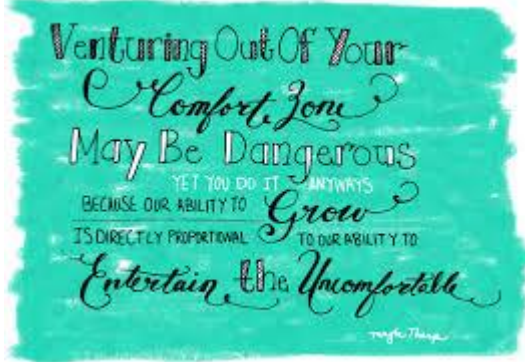 Venturing Out Of Your
Comfort Zone
May Be Dangerous
YET YOU DO IT ANYWAYS
BECAUSE OUR ABILITY TO Grow
IS DIRECTLY PROPORTIONAL TO OUR ABILITY TO
Entertain the Uncomfortable
Tharp